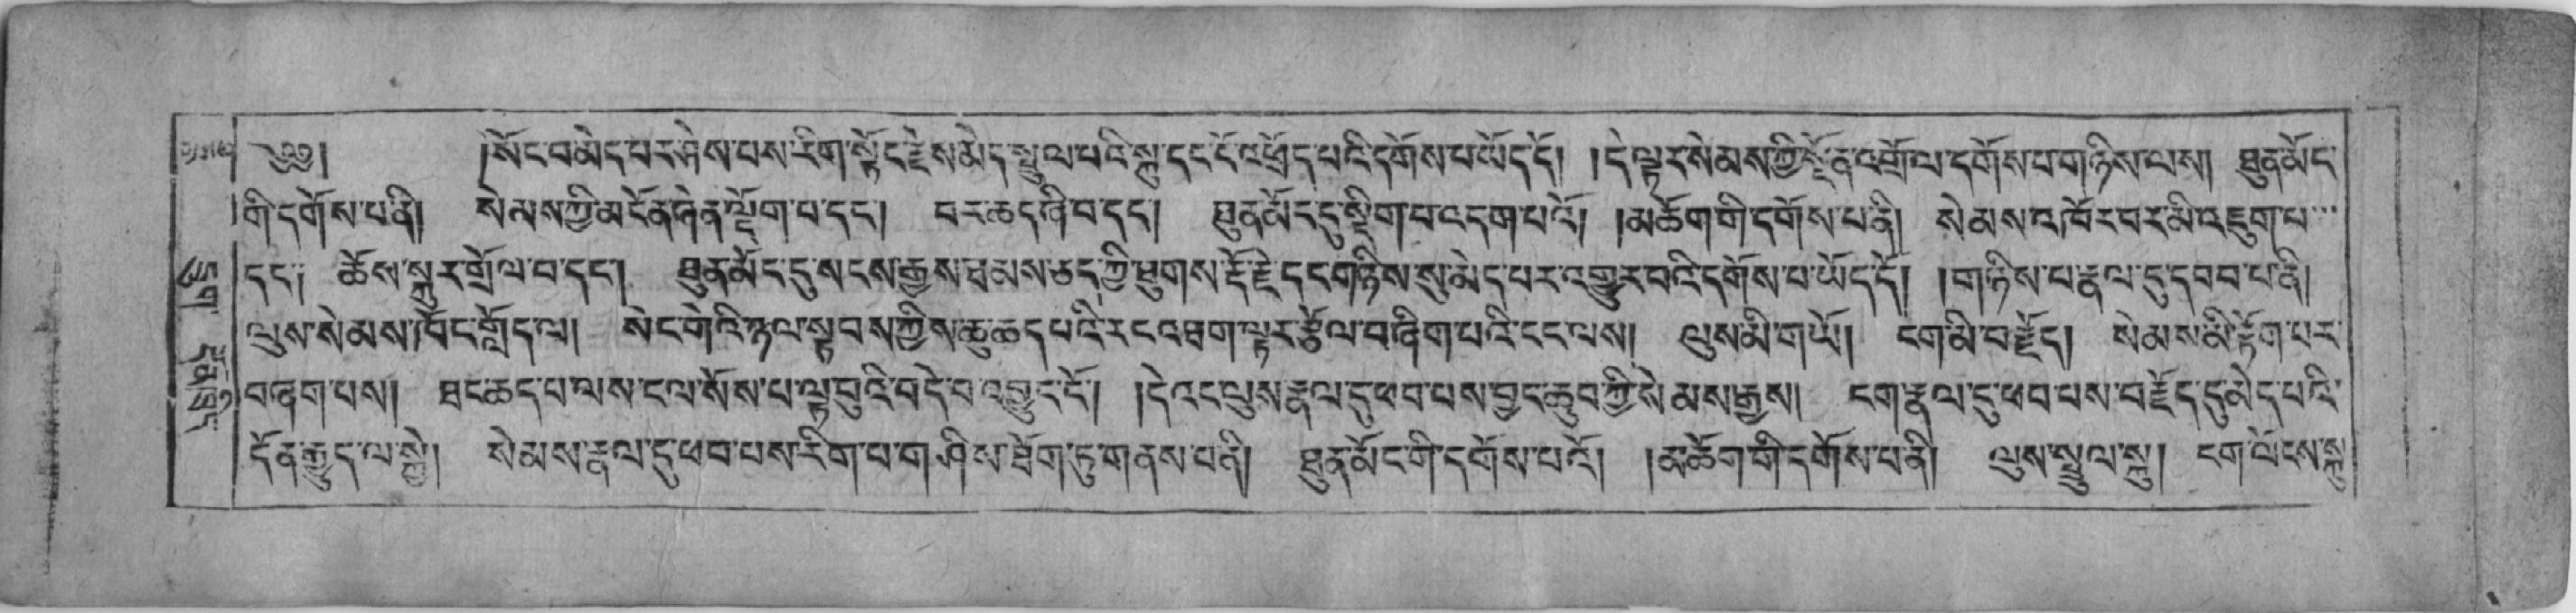 ༄༅། །སོང་བ་མེད་པར་ཤེས་པས་རིག་སྟོང་རྗེས་མེད་སྤྲུལ་པའི་སྐུ་དང་ངོ་འཕྲོད་པའི་དགོས་པ་ཡོད་དོ། །དེ་ལྟར་སེམས་ཀྱི་སྔོན་འགྲོ་ལ་དགོས་པ་གཉིས་ལས། ཐུན་མོང་
གི་དགོས་པ་ནི། སེམས་ཀྱི་མངོན་ཞེན་ལྡོག་པ་དང་། བར་ཆད་ཞི་བ་དང་། ཐུན་མོང་དུ་སྡིག་པ་འདག་པའོ། །མཆོག་གི་དགོས་པ་ནི། སེམས་འཁོར་བར་མི་འཇུག་པ་
དང་། ཆོས་སྐུར་གྲོལ་བ་དང་། ཐུན་མོང་དུ་སངས་རྒྱས་ཐམས་ཅད་ཀྱི་ཐུགས་རྡོ་རྗེ་དང་གཉིས་སུ་མེད་པར་འགྱུར་བའི་དགོས་པ་ཡོད་དོ། །གཉིས་པ་རྣལ་དུ་དབབ་པ་ནི།
ལུས་སེམས་ཁོང་གློད་ལ། སེང་གེའི་ཉལ་སྟབས་ཀྱིས་ཆུ་ཆད་པའི་རང་འཐག་ལྟར་རྩོལ་བ་ཞིག་པའི་ངང་ལས། ལུས་མི་གཡོ། ངག་མི་བརྗོད། སེམས་མི་རྟོག་པར་
བཞག་པས། ཐང་ཆད་པ་ལས་ངལ་སོས་པ་ལྟ་བུའི་བདེ་བ་འབྱུང་ངོ་། །དེ་འང་ལུས་རྣལ་དུ་ཕབ་པས་བྱང་ཆུབ་ཀྱི་སེམས་རྒྱས། ངག་རྣལ་དུ་ཕབ་པས་བརྗོད་དུ་མེད་པའི་
དོན་རྒྱུད་ལ་སྐྱེ། སེམས་རྣལ་དུ་ཕབ་པས་རིག་པ་གཤིས་ཐོག་ཏུ་གནས་པ་ནི། ཐུན་མོང་གི་དགོས་པའོ། །མཆོག་གི་དགོས་པ་ནི། ལུས་སྤྲུལ་སྐུ། ངག་ལོངས་སྐུ